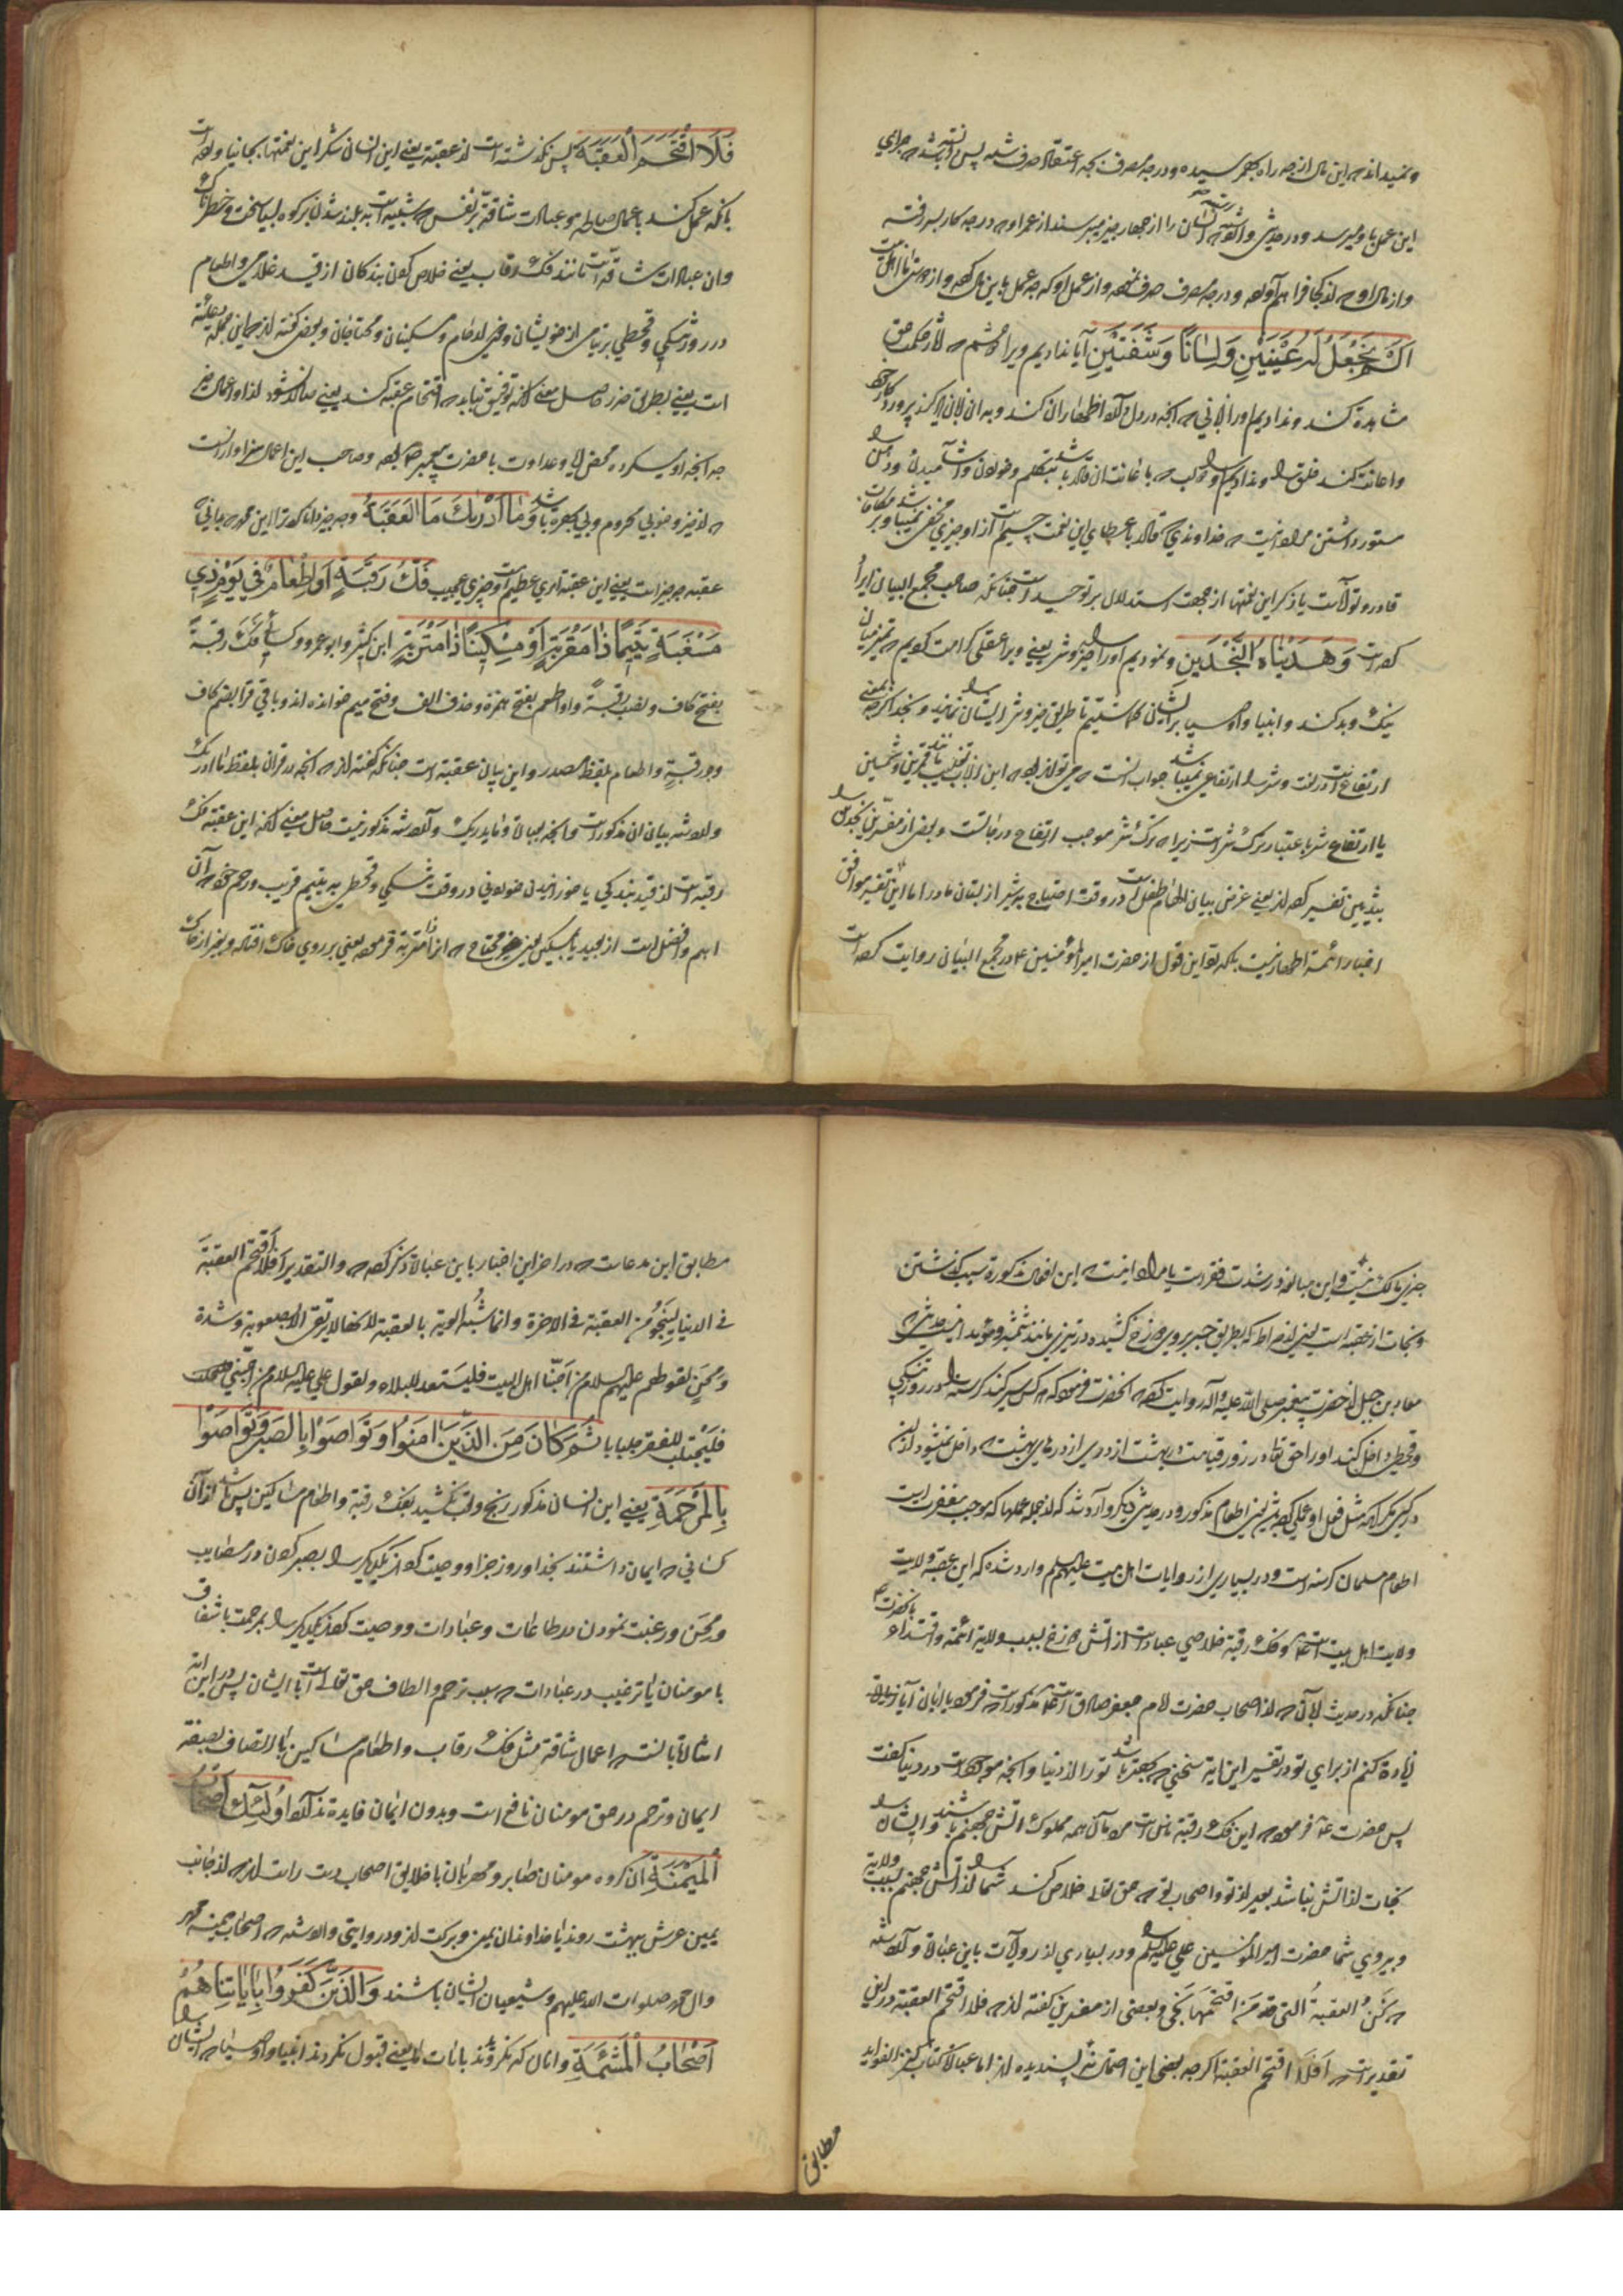 و نمیداند که این مال از چه راه بهم رسیده و در چه مصرف بچه اعتقاد صرف شده پس البته جزای
این عمل باو میرسد و در حدیثی واقع شده که انسان را از چهار چیز میپرسند از عمر او که در چه کار بسر رفته
و از مال او که از کجا فراهم آورده و در چه مصرف صرف نموده و از عمل او که چه عمل باین مال کرده و از دوستی ما اهل بیت
اَلَمْ نَجْعَلْ لَهُ عَیْنَیْنِ وَلِسَانًا وَشَفَتَیْنِ آیا ندادیم ویرا دو چشم که آثار حکمت حق
مشاهده کند و ندادیم او را زبانی که آنچه در دل دارد اظهار آن کند و به آن زبان ذکر پروردگار خود
و اعانت کند خلق را و ندادیم او را دو لب که باعانت آن قادر باشد بتکلم و خوردن و آشامیدن و دهن
مستور داشتن مراد اینست که خداوندی که قادر باعطای این نعمت جسیم است از او چیزی مخفی نمیباشد و بر مکافات
قادر و تواناست یا ذکر این نعمتها از جهت استدلال بر توحید است چنانکه صاحب مجمع البیان ایراد
کرده است وَهَدَیْنَاهُ النَّجْدَیْنِ و نمودیم او را راه خیر و شر یعنی ویرا عقلی کرامت کردیم که تمیز میان
نیک و بد کند و انبیا و اوصیا برای ایشان فرستادیم تا طریق خیر و شر را بایشان نمایند و نجد اگرچه بمعنی
ارتفاع است در لغت و شر را ارتفاعی نمیباشد جواب آنست که می تواند بود که این از باب تغلیب باشد مانند قمرین و شمسین
یا ارتفاع شر باعتبار ترک شر است زیرا که ترک شر موجب ارتفاع درجاتست و بعضی از مفسرین نجدین را
بثدیین تفسیر کرده اند یعنی غرض بیان الهام طفل است در وقت احتیاج به شیر از پستان مادر اما این تفسیر موافق
اخبار ائمه اطهار نیست بلکه رد این قول از حضرت امیر المؤمنین ع در مجمع البیان روایت کرده است
فَلَا اقْتَحَمَ الْعَقَبَةَ پس نگذشته است از عقبه یعنی این انسان شکر این نعمتها بجا نیاورده است
بانکه عمل کند باعمال صالحه و عبادات شاقه بر نفس که شبیه است به بلند شدن بر کوه بسیار سخت و خطرناک
و آن عبادات شاقه است مانند فک رقاب یعنی خلاص کردن بندگان از قید غلامی و اطعام
در روز تنگی و قحطی بر یتامی از خویشان و ذوی الارحام و مسکینان و محتاجان و بعضی گفته اند که این جمله دعائیه
است یعنی بطریق ضرر حاصل معنی آنکه توفیق نیابد که اقتحام عقبه کند یعنی صادر نشود از او اعمال خیر
چه آنچه او میکرده محض ریا و عداوت با حضرت پیغمبر ص بوده و صاحب این اعمال سزاوار است
که از خیر و خوبی محروم و بی بهره باشد وَمَا أَدْرَاكَ مَا الْعَقَبَةُ و چه چیز دانا کرد ترا ای محمد که بدانی که
عقبه چه چیز است یعنی این عقبه امری عظیم است و چیزی عجیب فَكُّ رَقَبَةٍ أَوْ إِطْعَامٌ فِي يَوْمٍ ذِي
مَسْغَبَةٍ يَتِيمًا ذَا مَقْرَبَةٍ أَوْ مِسْكِينًا ذَا مَتْرَبَةٍ ابن کثیر و ابو عمرو و کسائی فَكَّ رقبةً
بفتح کاف و نصب رقبةً و او اطعم بفتح همزه و حذف الف و فتح میم خوانده اند و باقی قرا بضم کاف
و جر رقبةٍ و اطعام بلفظ مصدر و این بیان عقبه است چنانکه گفته اند که آنچه در قران بلفظ ما ادریك
وارد شده بیان آن مذکور است و آنچه بعبارة و ما یدریك وارد شده مذکور نیست حاصل معنی آنکه این عقبه فک
رقبه است از قید بندگی یا خورانیدن خوردنی در وقت تنگی و قحطی به یتیم قریب و رحم خود که آن
اهم و افضل است از بعید یا بمسکین یعنی محتاج که از ذا متربة فرموده یعنی بر روی خاک افتاده و بغیر از خاک
چیزی مالک نیست و این مبالغه در شدت فقر است یا مراد اینست که این افعال مذکوره سبب گذشتن
و نجات از عقبه است یعنی از صراط که بطریق جسر بر روی دوزخ کشیده در تیزی مانند شمشیر و مؤید اینست حدیثی که
معاذ بن جبل از حضرت پیغمبر صلی الله علیه و آله روایت کرده که آنحضرت فرمود که هر کس سیر کند گرسنه را در روز تنگی
و قحطی داخل کند او را حق تعالی در روز قیامت در بهشت از دری از درهای بهشت که داخل نمیشود از آن
در کسی مگر آنکه مثل فعل او عملی کرده باشد یعنی اطعام مذکور و در حدیثی دیگر وارد شد که از جمله عملها که موجب مغفرت است
اطعام مسلمان گرسنه است و در بسیاری از روایات اهل بیت علیهم السلم وارد شده که این عقبه ولایت
ولایت اهل بیت است ع و فک رقبه خلاصی عباد است از آتش دوزخ بسبب ولایة ائمه و اقتداء بآنحضرت ع
چنانکه در حدیث ابان که از اصحاب حضرت امام جعفر صادق است ع مذکور است که فرمود یا ابان آیا زیاده
زیاده کنم از برای تو در تفسیر این ایه سخنی که بهتر باشد تو را از دنیا و آنچه موجود است در دنیا گفت
پس حضرت ع فرمود که این فک رقبه ناس است مردمان همه مملوک آتش جهنم باشند و ایشان را
نجات از آتش نباشد بغیر از تو و اصحاب تو که حق تعالی خلاص کند شما را از آتش جهنم بسبب ولایة
و پیروی شما حضرت امیر المؤمنین علی علیه السلم و در بسیاری از روایات باین عبارة وارد شده
که نحن العقبةُ التی من اقتحمها نجی و بعضی از مفسرین گفته اند که فلا اقتحم العقبة در این
تقدیر است که اَفَلَا اقتحم العقبة اگرچه بعضی این احتمال نه پسندیده اند اما عبارة کتاب کنز الفواید
مطابق
مطابق این مدعاست که در آخر این اخبار باین عبارة ذکر کرده که والتقدیر اَفَلَا اقْتَحَمَ العقبةَ
فی الدنیا لِیَنْجُوَ مِنَ العقبة فی الاخرة و انما شبّه الولایه بالعقبة لانها لا یرتقی الا بصعوبة و شدة
و مِحَنٍ لقولهم علیهم السلام من اَحَبَّنا اهل البیت فلیستعد للبلاء و لقول علی علیه السلام من احبّنی
فَلْیَجْلِبْ للفقر جلبابا ثُمَّ كَانَ مِنَ الَّذِينَ آمَنُوا وَتَوَاصَوْا بِالصَّبْرِ وَتَوَاصَوْا
بِالْمَرْحَمَةِ یعنی این انسان مذکور رنج و تعب نکشید بفک رقبه و اطعام مساکین پس باشد از آن
کسانی که ایمان داشتند بخدا و روز جزا و وصیت کردند یکدیگر را بصبر کردن در مصایب
و محن و رغبت نمودن در طاعات و عبادات و وصیت کردند یکدیگر را بمرحمت با شفاق
با مومنان یا ترغیب در عبادات که سبب ترحم و الطاف حق تعالی است با ایشان پس در این آیه
اشاره بآنست که اعمال شاقه مثل فک رقاب و اطعام مساکین با اتصاف بصفة
ایمان و ترحم در حق مومنان نافع است و بدون ایمان فایده ندارد أُولَٰئِكَ أَصْحَابُ
الْمَيْمَنَةِ آن گروه مومنان صابر و مهربان با خلایق اصحاب دست راست اند که از جانب
یمین عرش ببهشت روند یا خداوندان یمن و برکت اند و در روایتی وارد شده که اصحاب میمنه محمد
و آل محمد صلوات الله علیهم و شیعیان ایشان باشند وَالَّذِينَ كَفَرُوا بِآيَاتِنَا هُمْ
أَصْحَابُ الْمَشْأَمَةِ و آنان که نگرویدند بآیات ما یعنی قبول نکردند انبیا و اوصیا را که ایشان